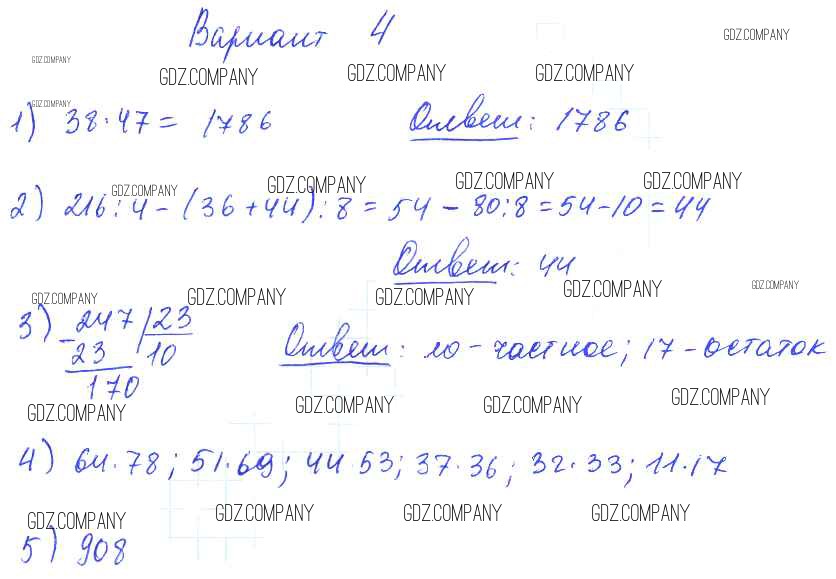 Вариант 4
GDZ.COMPANY
GDZ.COMPANY
GDZ.COMPANY GDZ.COMPANY GDZ.COMPANY
GDZ.COMPANY
1) 38·47 = 1786 Ответ: 1786
GDZ.COMPANY GDZ.COMPANY GDZ.COMPANY GDZ.COMPANY
2) 216:4-(36+44):8=54-80:8=54-10=44
Ответ: 44
GDZ.COMPANY GDZ.COMPANY GDZ.COMPANY GDZ.COMPANY GDZ.COMPANY
3) -247 |23 Ответ: 10 - частное; 17 - остаток
23 10
170
GDZ.COMPANY GDZ.COMPANY GDZ.COMPANY GDZ.COMPANY
4) 64·78; 51·69; 44·53; 37·36; 32·33; 11·17
GDZ.COMPANY GDZ.COMPANY GDZ.COMPANY GDZ.COMPANY
5) 908